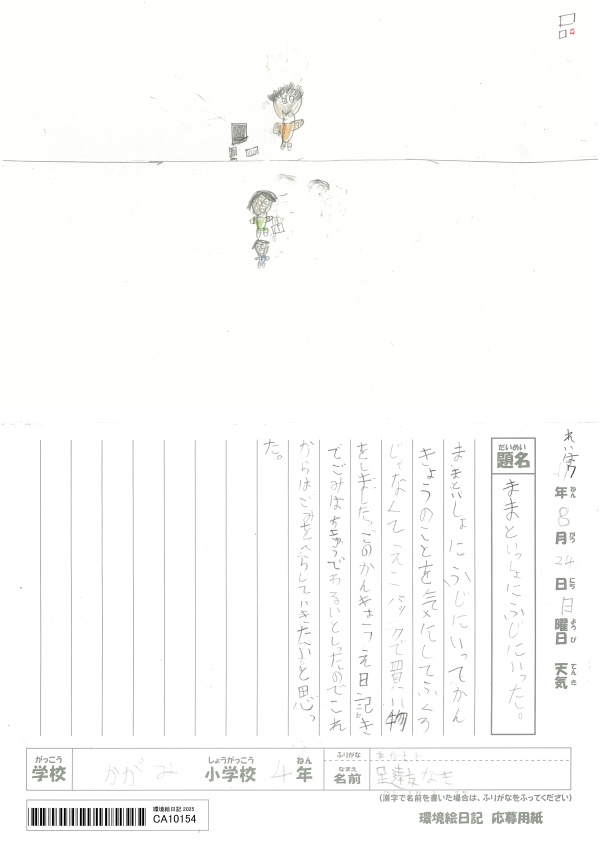 年8月24日日曜日 天気
ねん がつ にち ようび てんき
だいめい
題名 ままといっしょにふじにいった。
ままといしょにふじにいってかん
きょうのことを気にしてふくろ
じゃなくてえこバックで買い物
をしました。このかんきょうえ日記き
でごみは
からはごみをへらしていきたいと思っ
た。
がっこう しょうがっこう ねん
学校 かがみ 小学校 4年
ふりがな
なまえ
名前 足達 なぎ
(漢字で名前を書いた場合は、ふりがなをふってください)
環境絵日記 2025
CA10154
環境絵日記 応募用紙